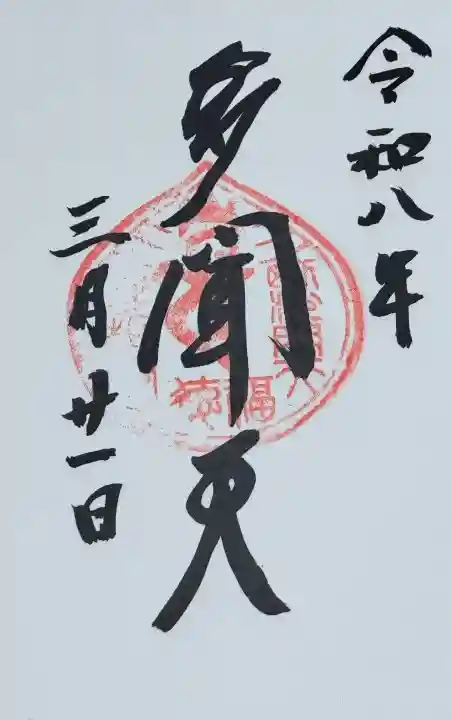 令和八年
多聞天
三月廿一日
福